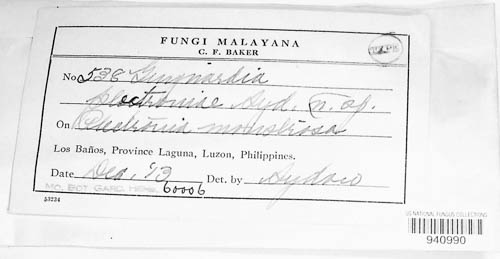 FUNGI MALAYANA
C. F. BAKER
TYPE
No. 538 Guignardia
plectroniae Syd. n. sp.
On Plectronia monstrosa
Los Baños, Province Laguna, Luzon, Philippines.
Date Dec. '13 Det. by Sydow
MO. BOT. GARD. HERB. 60006
53234
US NATIONAL FUNGUS COLLECTIONS
940990